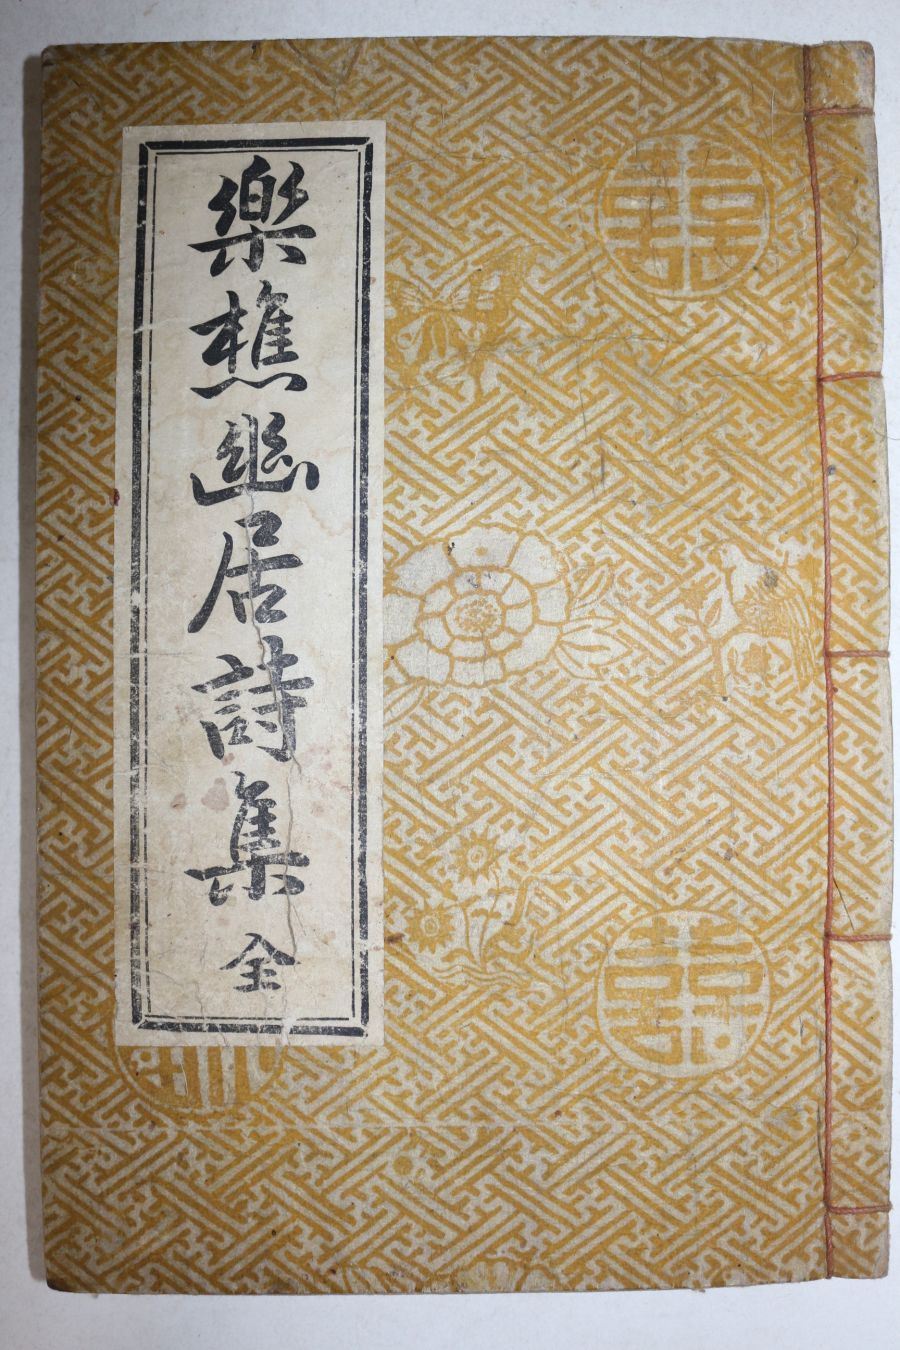 樂樵幽居詩集 全